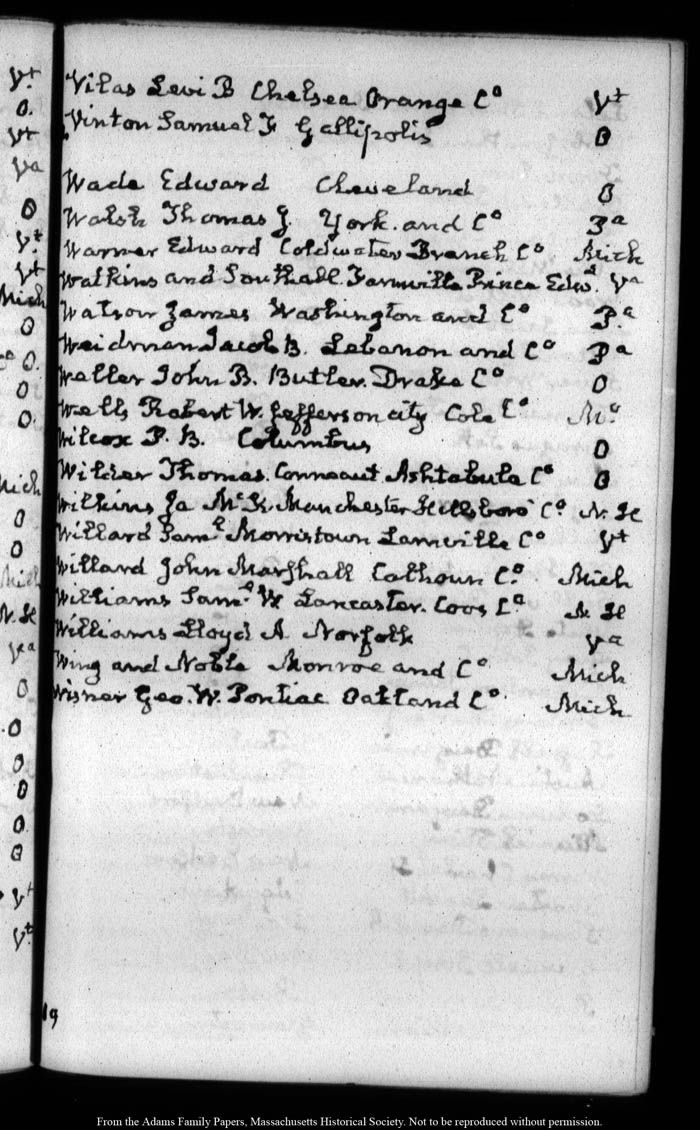 Vt
O.
Vt
Va
O
Vt
Vt
Mich
O
Co O.
O
O.
Mich
O
O
Mich
N. H
Va
O
O
O
O
O.
O
Vt
Vt.
Vilas Levi B Chelsea Orange Co Vt
Vinton Samuel F Gallipolis O
Wade Edward Cleveland O
Walsh Thomas J. York. and Co Pa
Warner Edward Coldwater Branch Co Mich
Watkins and Southall. Farmville Prince Edwd. Va
Watson James Washington and Co Pa
Weidman Jacob B. Lebanon and Co Pa
Weller John B. Butler. Drake Co O
Wells Robert W. Jefferson city Cole Co Mo
Wilcox P. B. Columbus O
Wilder Thomas. Conneaut Ashtabula Co O
Wilkins Ja McK. Manchester Hillsboro' Co. N. H
Willard Saml Morristown Lamville Co Vt
Willard John Marshall Calhoun Co. Mich
Williams Saml W. Lancaster. Coos Co N. H
Williams Lloyd A. Norfolk Va
Wing and Noble Monroe and Co Mich
Wisner Geo. W. Pontiac Oakland Co. Mich
19
From the Adams Family Papers, Massachusetts Historical Society. Not to be reproduced without permission.